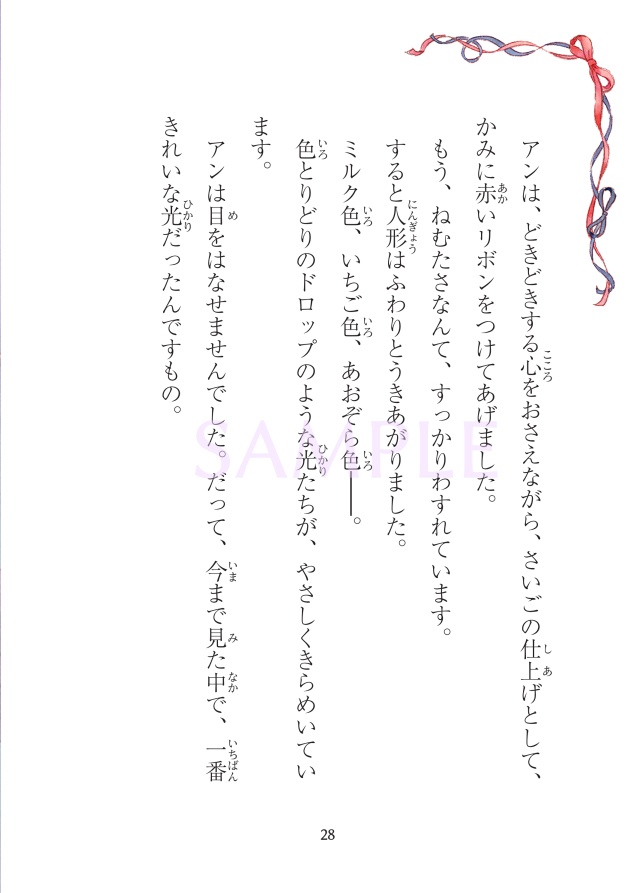 アンは、どきどきする心をおさえながら、さいごの仕上げとして、
かみに赤いリボンをつけてあげました。
もう、ねむたさなんて、すっかりわすれています。
すると人形はふわりとうきあがりました。
ミルク色、いちご色、あおぞら色――。
色とりどりのドロップのような光たちが、やさしくきらめいてい
ます。
アンは目をはなせませんでした。だって、今まで見た中で、一番
きれいな光だったんですもの。
SAMPLE
28